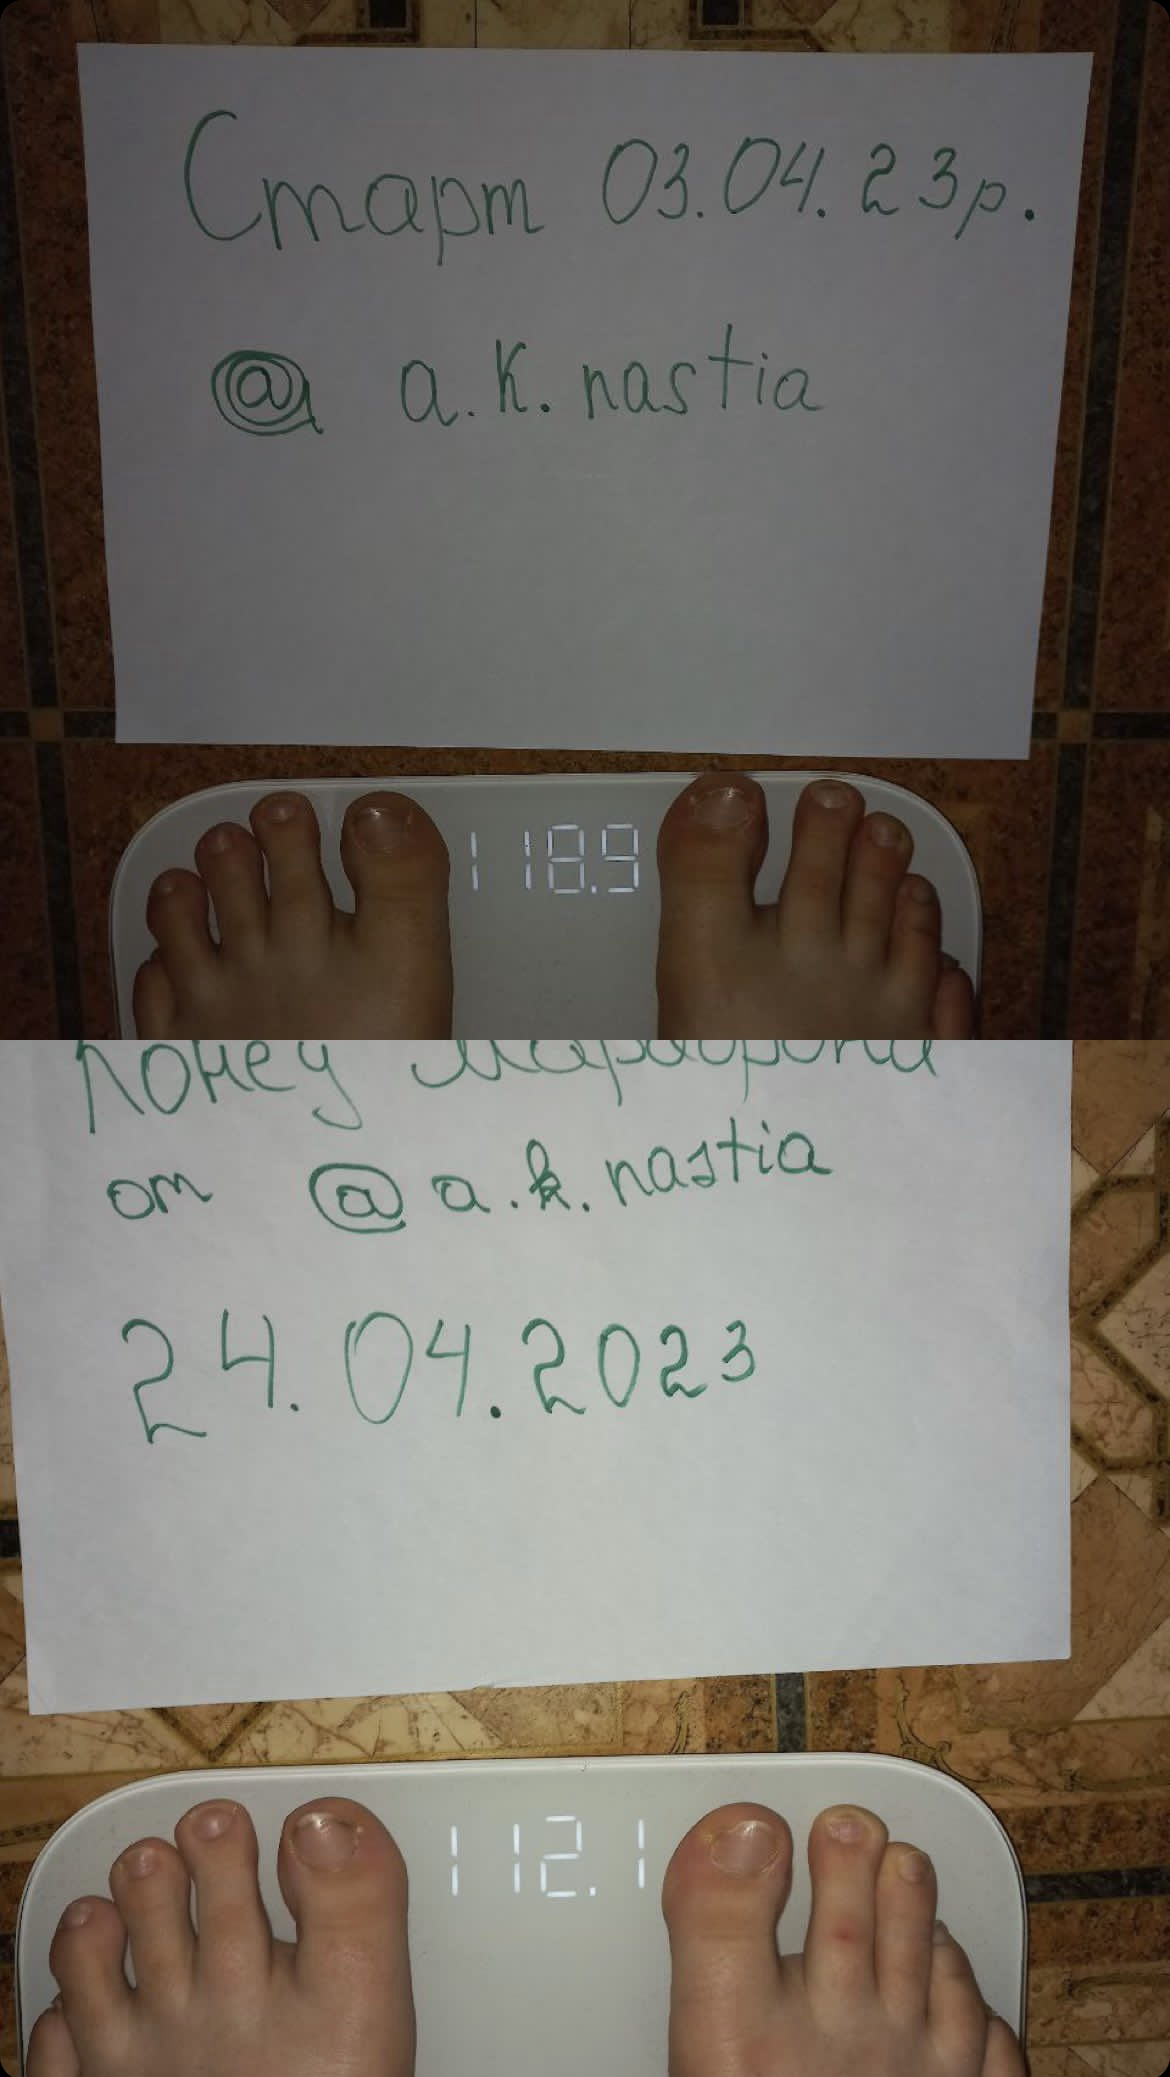 Старт 03.04.23р.
@ a.k.nastia
118.9
Конец марафона
от @ a.k.nastia
24.04.2023
112.1